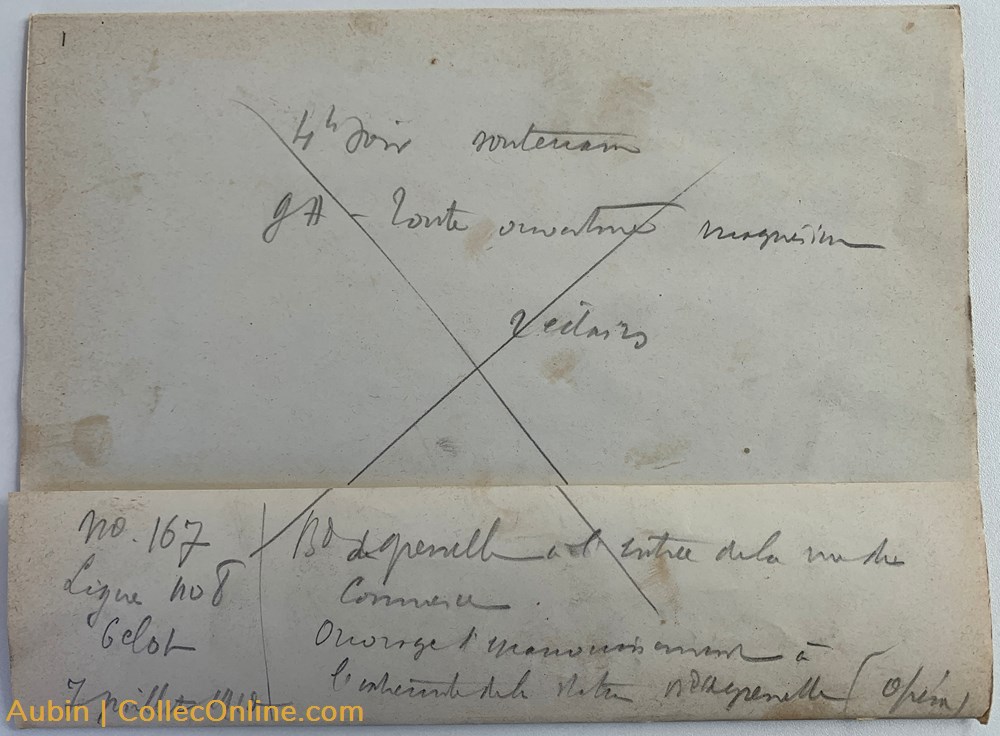 1
4h Soir souterrain
GA - Toute ouverture magnésium
2 éclairs
no. 167
Ligne no 8
6e lot
7 juillet 1910
Bd de grenelle à l'entrée de la rue du
Commerce.
Ouvrage d' à
de la station Bd de grenelle (Opéra)
Aubin | CollecOnline.com